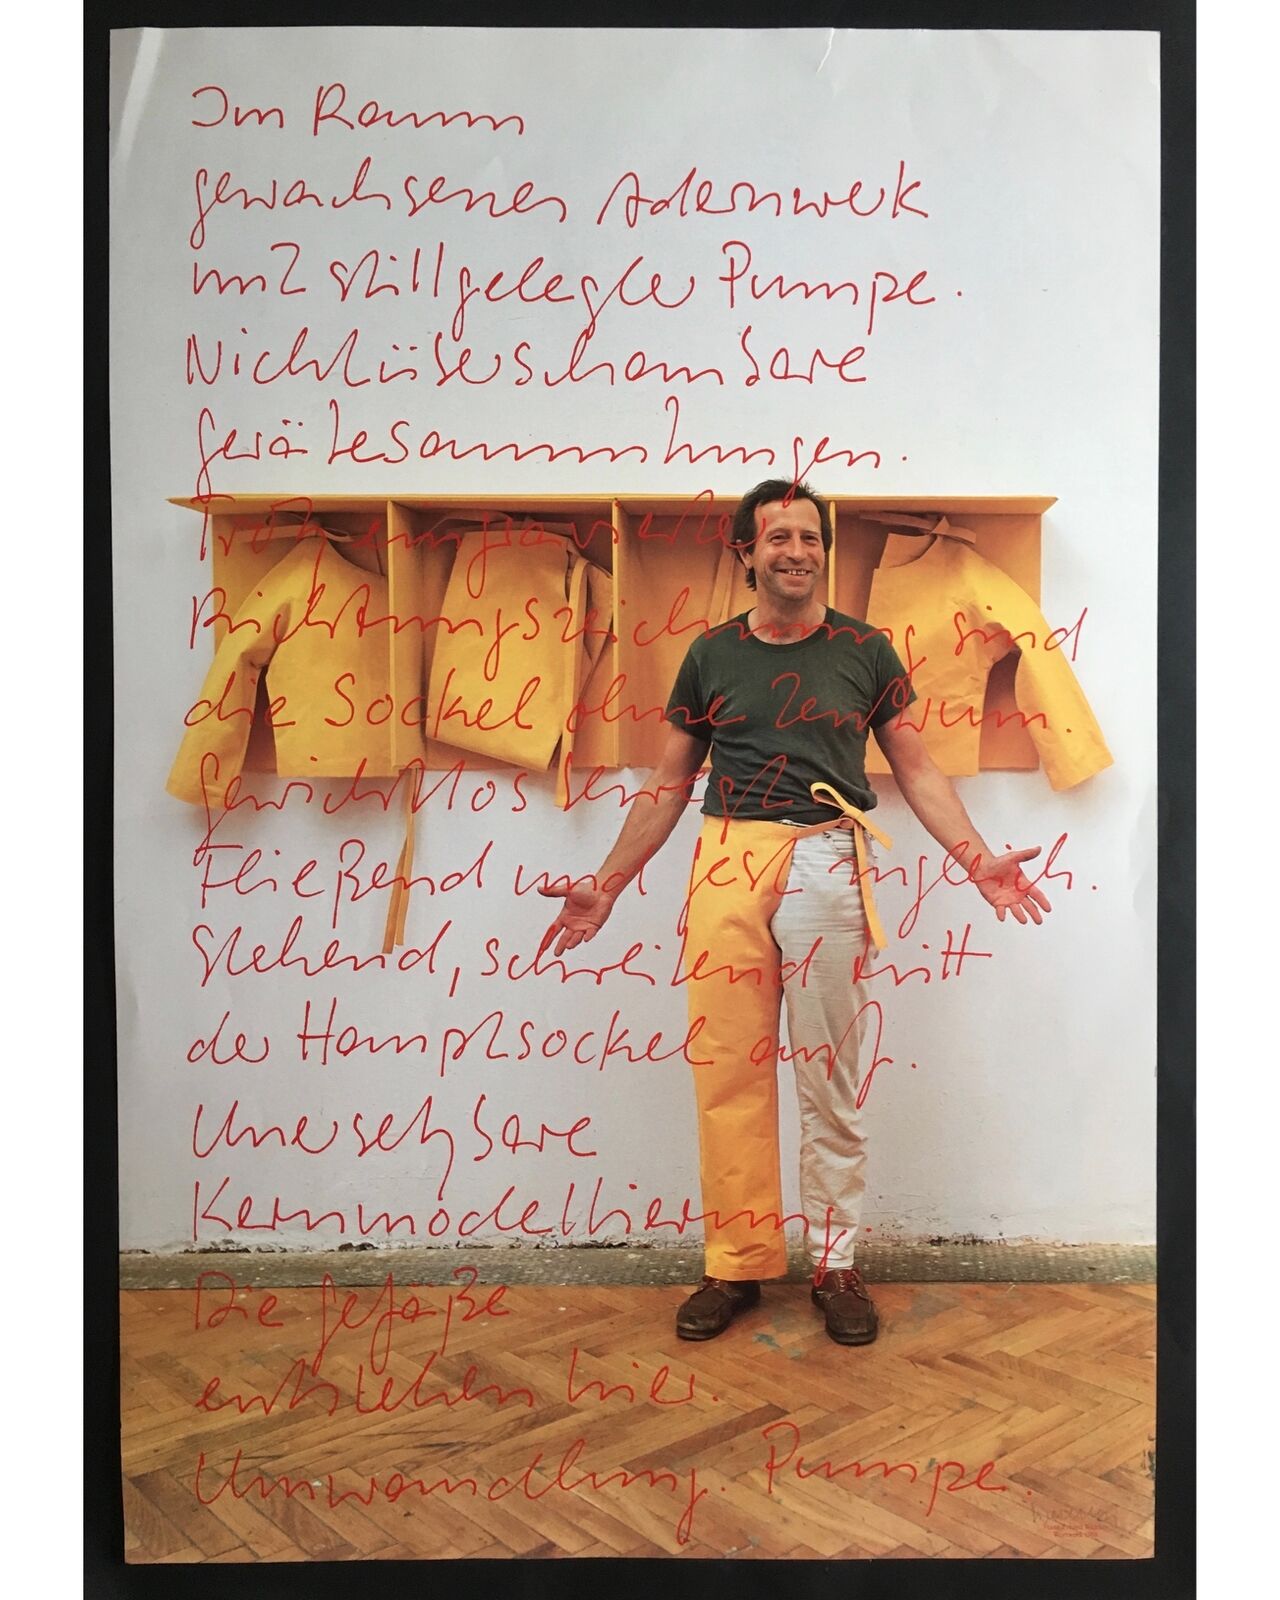 Im Raum
gewachsenes Adernwerk
mit stillgelegter Pumpe.
Nichtüberschaubare
Gerätesammlungen.
Trotz eingravierter
Richtungszeichnung sind
die Sockel ohne Zentrum.
Gewichtlos bewegt
Fließend und fest zugleich.
Stehend, schreitend tritt
der Hauptsockel auf.
Unersetzbare
Kernmodellierung.
Die Gefäße
entstehen hier.
Umwandlung. Pumpe.